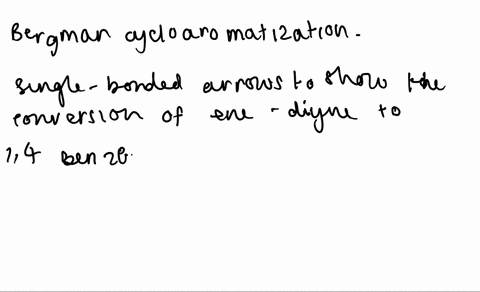 Bergman cycloaromatization.
single-bonded arrows to show the
conversion of ene-diyne to
1,4